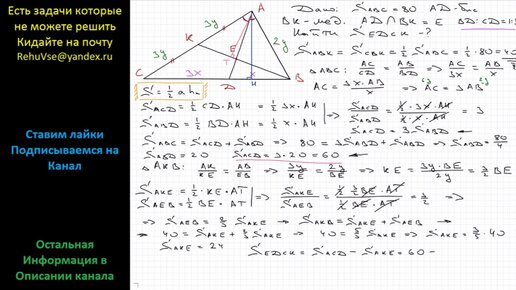 Есть задачи которые
не можете решить
Кидайте на почту
RehuVse@yandex.ru
Ставим лайки
Подписываемся на
Канал
Остальная
Информация в
Описании канала
A
3y
K
3y
2y
E
T
C
3x
D
x
H
B
Дано: S_ABC = 80 AD-бис
BK-мед. AD∩BK = E BD:CD=1:3
Найти S_EDCK - ?
S_ABK = S_CBK = 1/2 S_ABC = 1/2 · 80 = 40
△ABC: AC/CD = AB/BD => AC/3x = AB/x
AC = 3x·AB/x => AC = 3AB
S = 1/2 a h_a
S_ACD = 1/2 CD·AH = 1/2 3x·AH
S_ABD = 1/2 BD·AH = 1/2 x·AH
=> S_ACD/S_ABD = 1/2·3x·AH / 1/2·x·AH = 3
S_ACD = 3S_ABD
S_ABC = S_ACD + S_ABD => 80 = 3S_ABD + S_ABD => 80 = 4S_ABD
S_ABD = 20 S_ACD = 3·20 = 60
△AKB: AK/KE = AB/BE => 3y/KE = 2y/BE => KE = 3y·BE/2y = 3/2 BE
S_AKE = 1/2·KE·AT
S_AEB = 1/2 BE·AT
=> S_AKE/S_AEB = 1/2·3/2 BE·AT / 1/2·BE·AT = 3/2 =>
=> S_AEB = 2/3 S_AKE => S_AKB = S_AKE + S_AEB =>
=> 40 = S_AKE + 2/3 S_AKE => 40 = 5/3 S_AKE => S_AKE = 3/5·40
S_AKE = 24 S_EDCK = S_ACD - S_AKE = 60 -